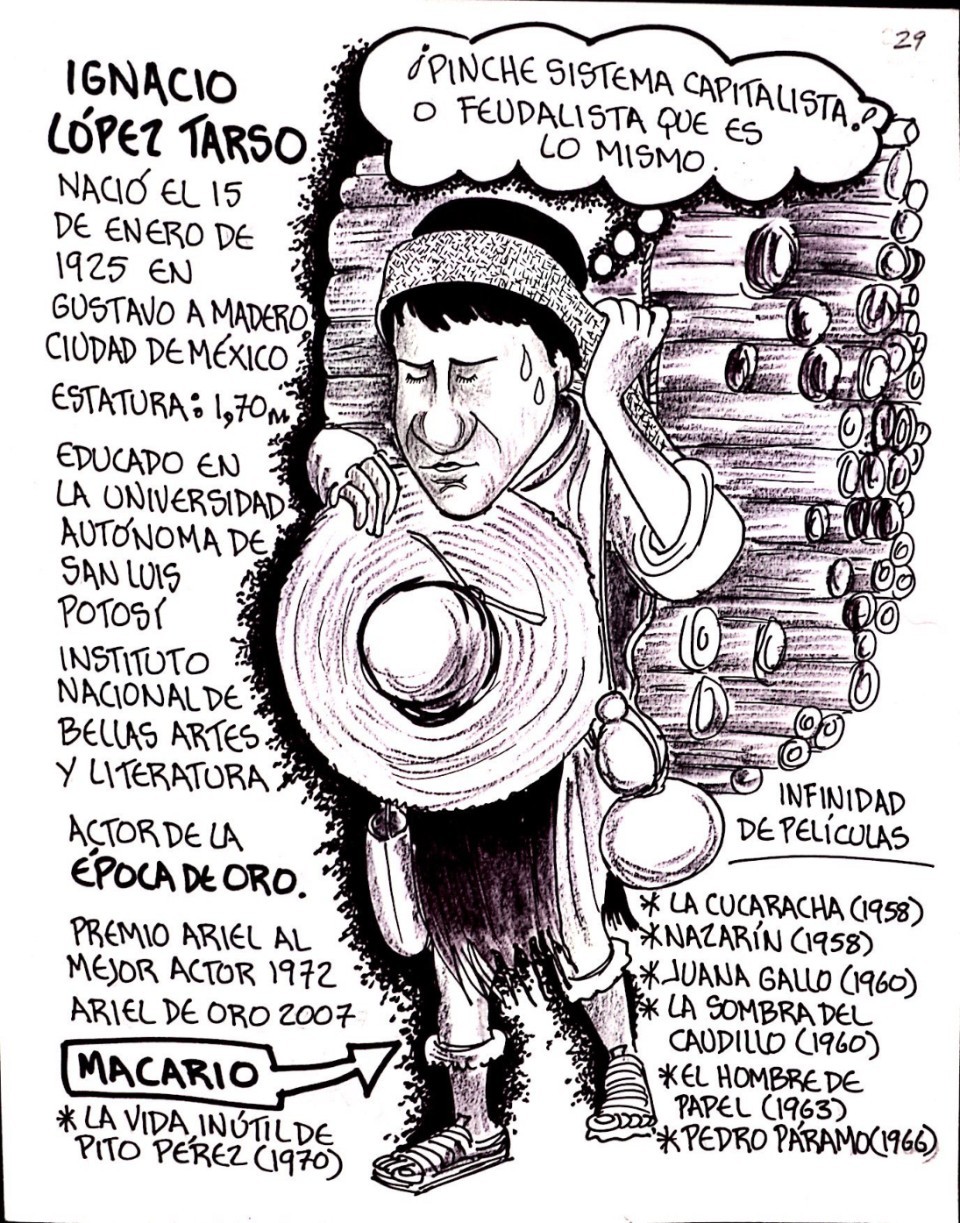 29
IGNACIO
LÓPEZ TARSO
NACIÓ EL 15
DE ENERO DE
1925 EN
GUSTAVO A MADERO,
CIUDAD DE MÉXICO
ESTATURA: 1,70 M
EDUCADO EN
LA UNIVERSIDAD
AUTÓNOMA DE
SAN LUIS
POTOSÍ
INSTITUTO
NACIONAL DE
BELLAS ARTES
Y LITERATURA
ACTOR DE LA
ÉPOCA DE ORO.
PREMIO ARIEL AL
MEJOR ACTOR 1972
ARIEL DE ORO 2007
MACARIO
* LA VIDA INÚTIL DE
PITO PÉREZ (1970)
¡PINCHE SISTEMA CAPITALISTA!
O FEUDALISTA QUE ES
LO MISMO.
INFINIDAD
DE PELÍCULAS
* LA CUCARACHA (1958)
* NAZARÍN (1958)
* JUANA GALLO (1960)
* LA SOMBRA DEL
CAUDILLO (1960)
* EL HOMBRE DE
PAPEL (1963)
* PEDRO PÁRAMO (1966)